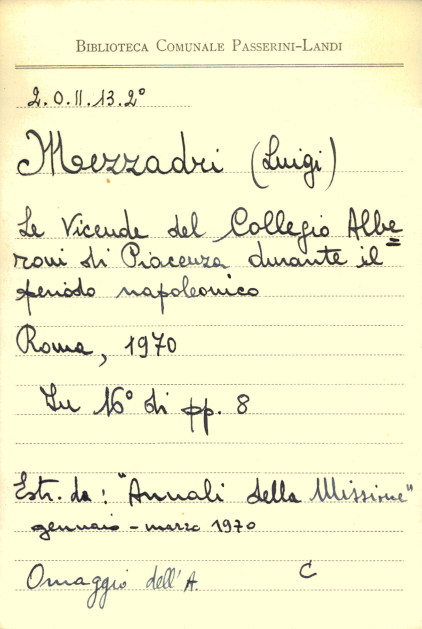 BIBLIOTECA COMUNALE PASSERINI-LANDI
2.O.II.13.2°
Mezzadri (Luigi)
Le Vicende del Collegio Albe=
roni di Piacenza durante il
periodo napoleonico
Roma, 1970
In 16° di pp. 8
Estr. da: "Annali della Missione"
gennaio - marzo 1970
Omaggio dell'A. C